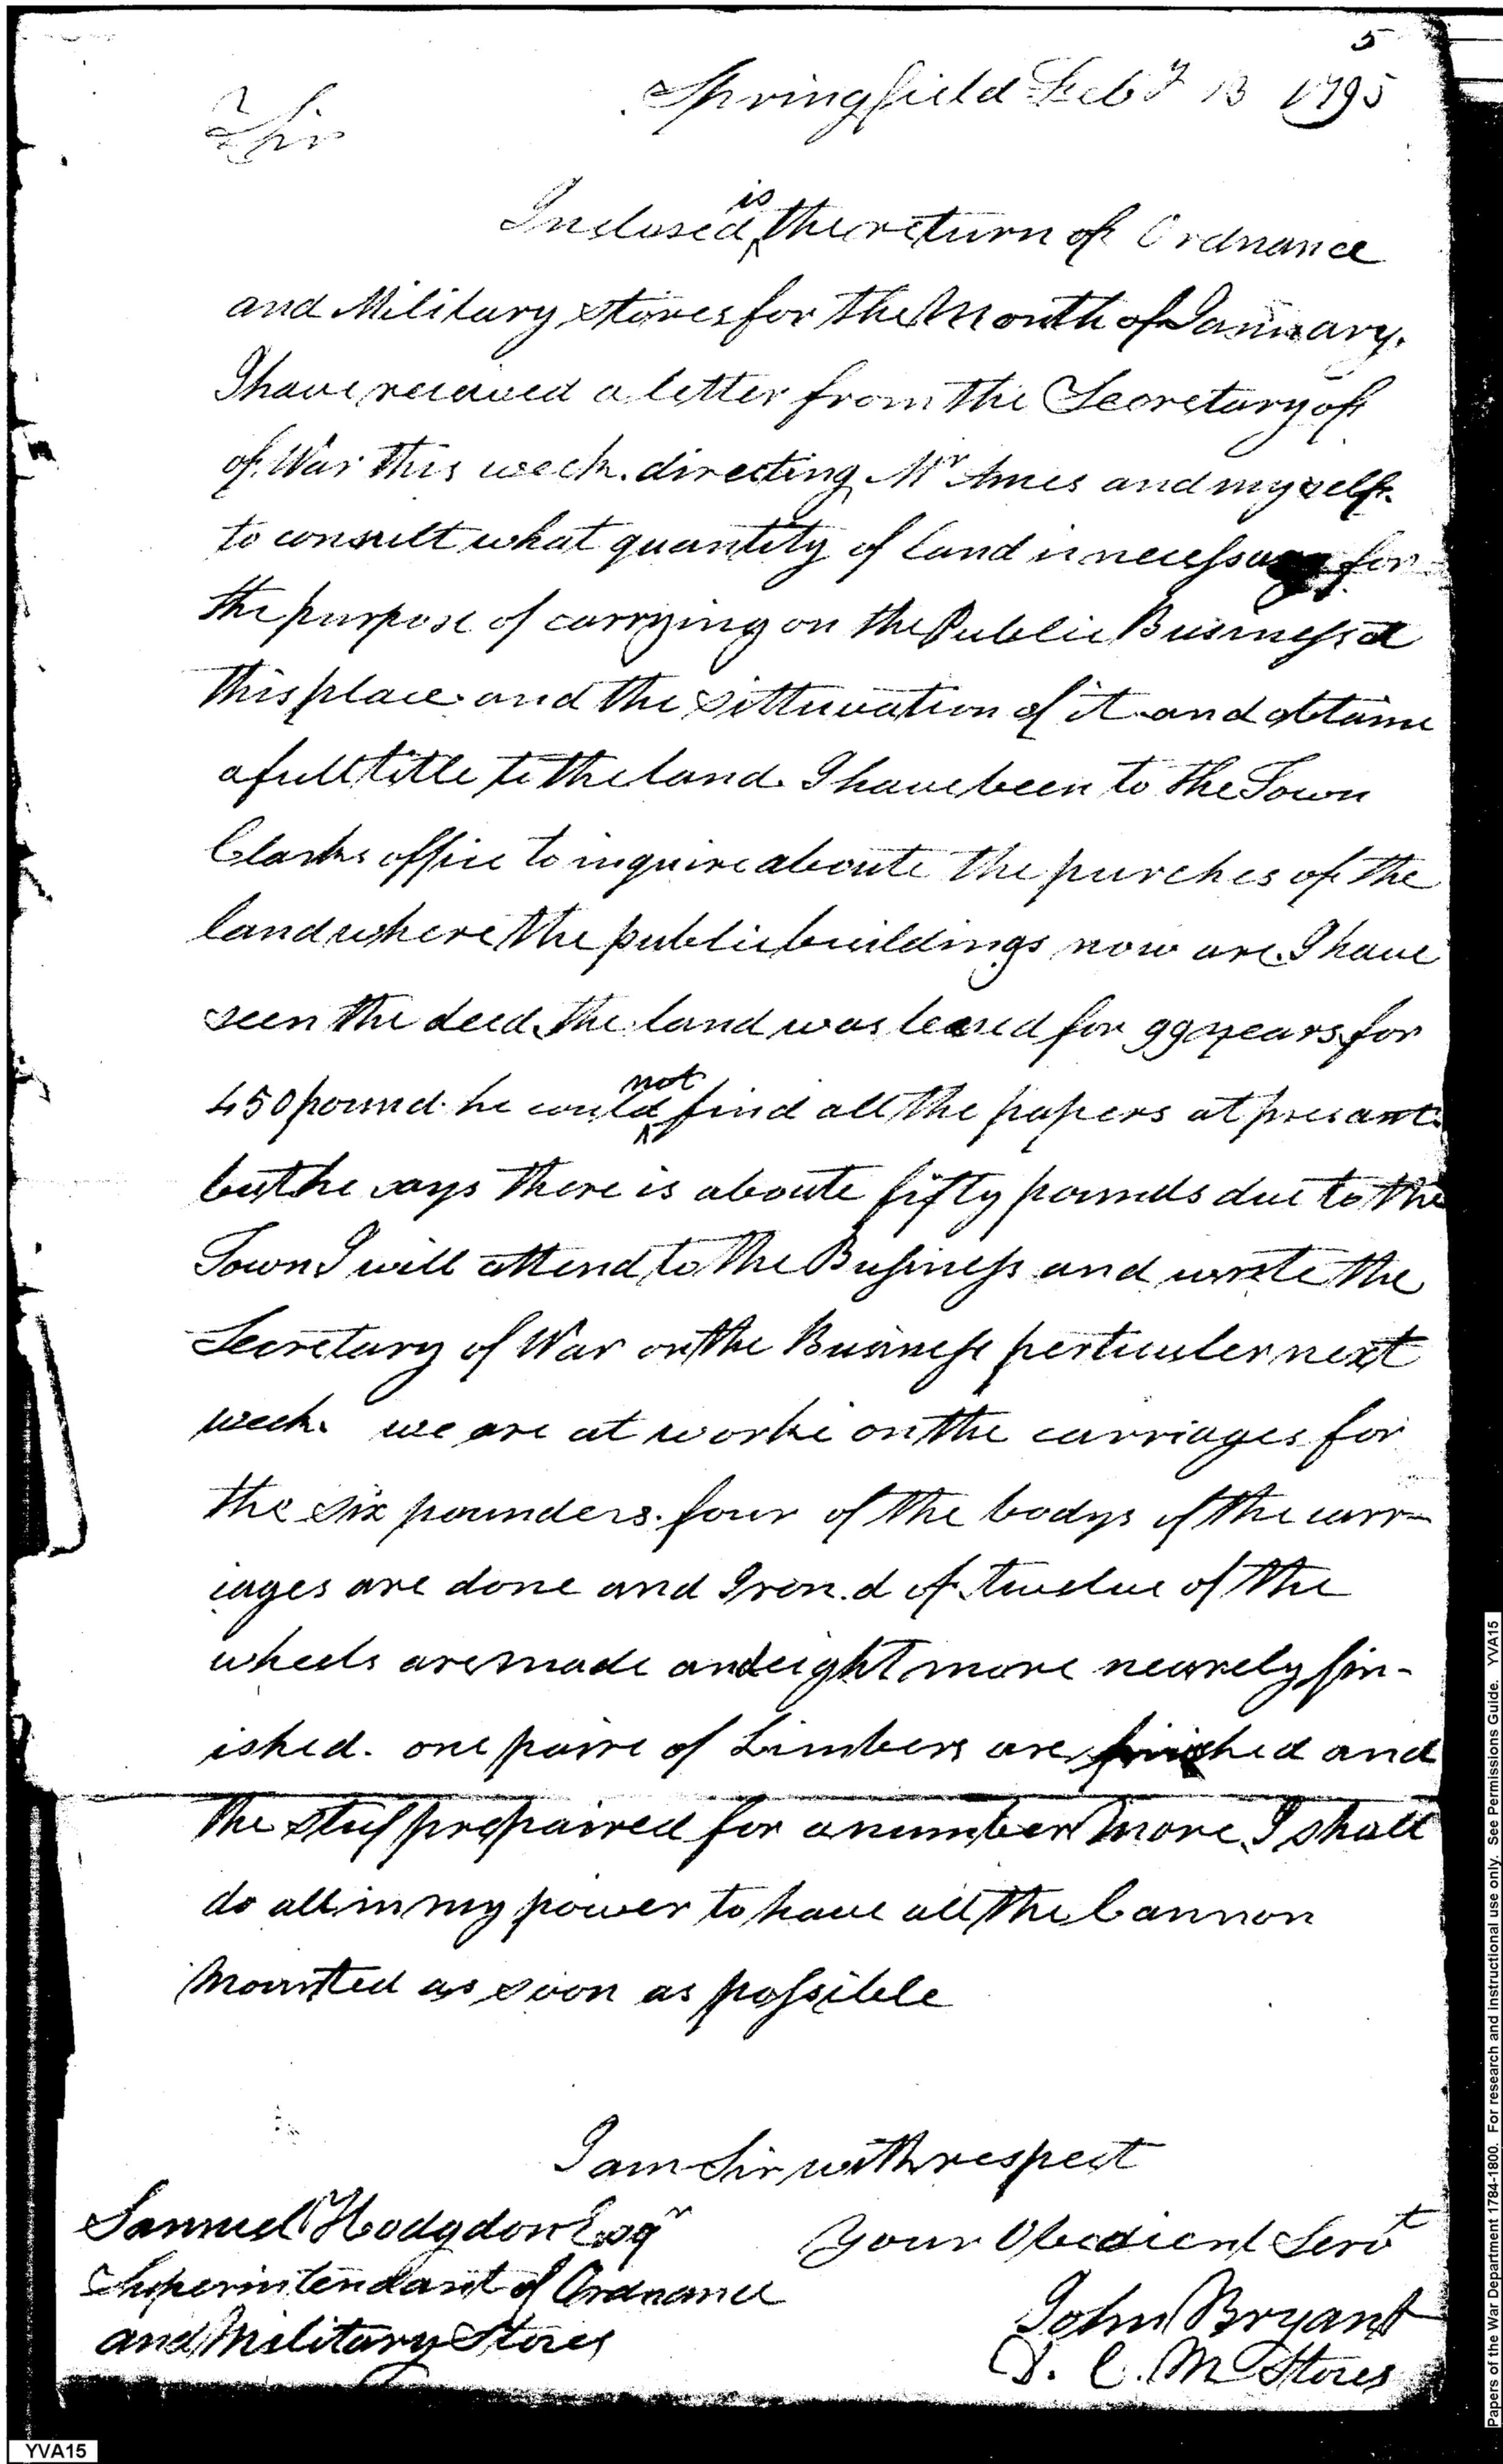 5
Springfield Feby 13 1795
Sir
Inclosed is the return of Ordnance
and Military stores for the Month of January.
I have receaved a letter from the Secretary of
of War this week. directing Mr Ames and myself.
to consult what quantity of land is necessary for
the purpose of carrying on the Public Business at
this place and the sittuation of it and obtaine
a full title to the land. I have been to the Town
Clarks office to inquire aboute the purches of the
land where the public buildings now are. I have
seen the deed. the land was leased for 99 years for
450 pound. he could not find all the papers at presant.
but he says there is aboute fifty pounds due to the
Town I will attend to the Business and wrote the
Secretary of War on the Business perticuler next
week. we are at worke on the carriages for
the six pounders. four of the bodys of the carr-
iages are done and Iron.d of. twelve of the
wheels are made and eight more nearely fin-
ished. one paire of Limbers are finished and
the stuf prepaired for a number more. I shall
do all in my power to have all the Cannon
Mounted as soon as possible
I am Sir with respect
Your Obedient Servt
John Bryant
D. C. M Stores
Samuel Hodgdon Esqr
Superintendant of Ordnance
and Military Stores
Papers of the War Department 1784-1800. For research and instructional use only. See Permissions Guide. YVA15
YVA15